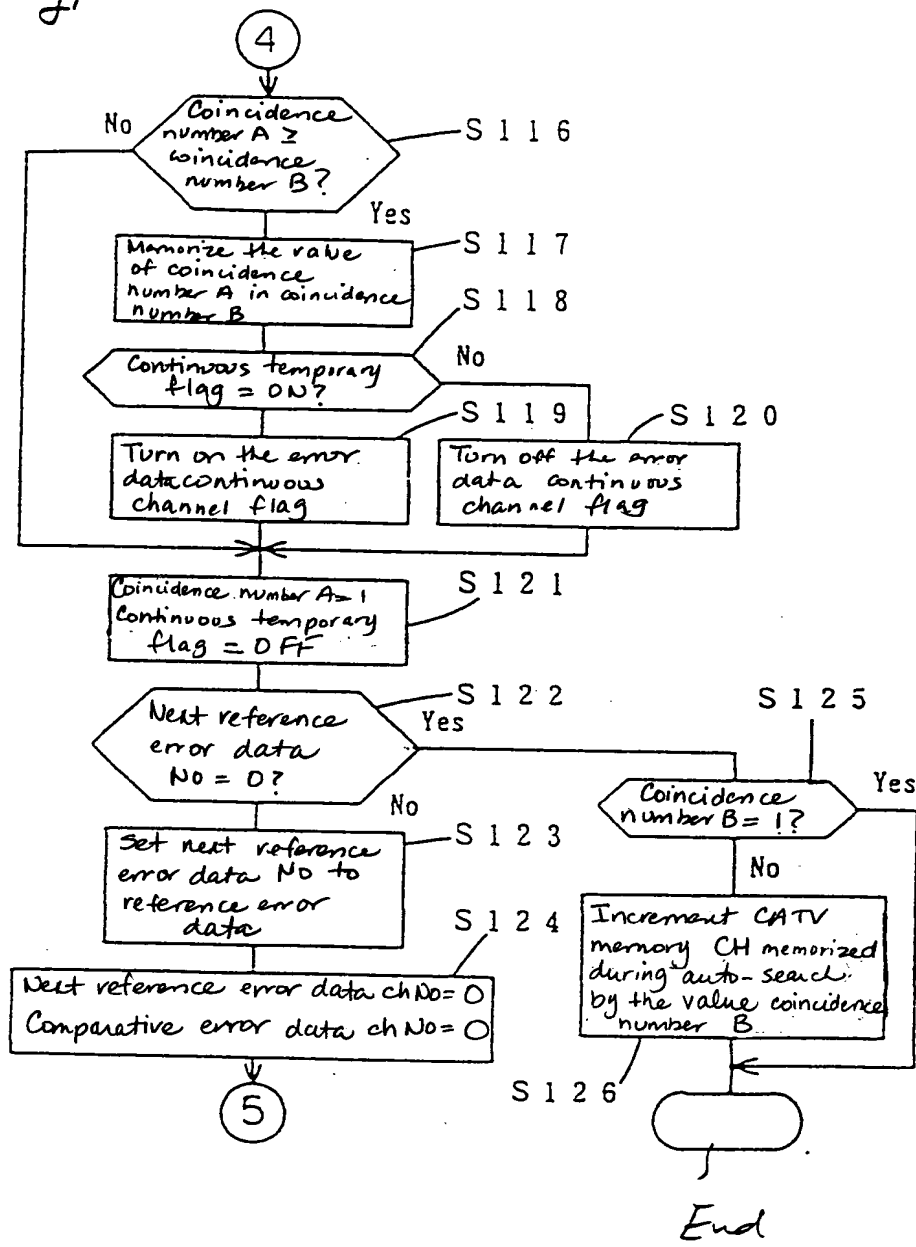 4
Coincidence
number A ≥
coincidence
number B?
No
S116
Yes
Memorize the value
of coincidence
number A in coincidence
number B
S117
S118
Continuous temporary
flag = ON?
No
S119
S120
Turn on the error
data continuous
channel flag
Turn off the error
data continuous
channel flag
Coincidence number A=1
Continuous temporary
flag = OFF
S121
S122
Next reference
error data
No = 0?
Yes
No
S125
Coincidence
number B= 1?
Yes
No
Set next reference
error data No to
reference error
data
S123
S124
Next reference error data chNo=0
Comparative error data chNo=0
5
Increment CATV
memory CH memorized
during auto-search
by the value coincidence
number B
S126
End